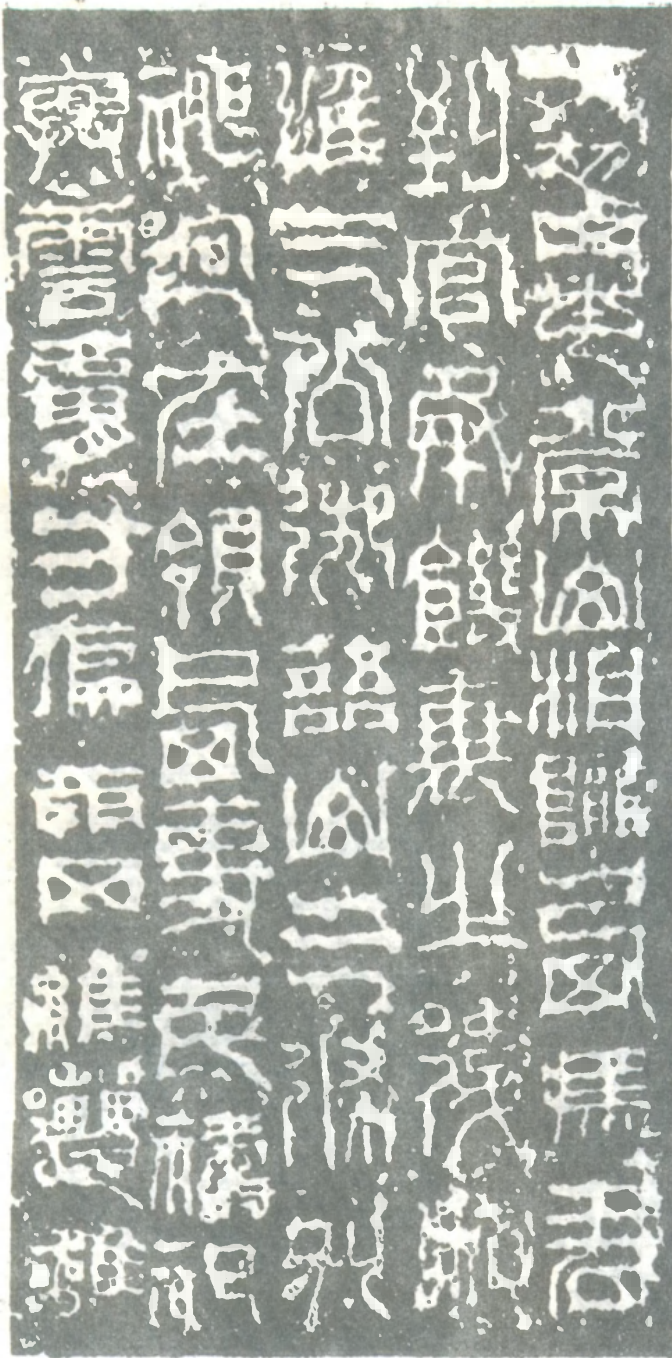 初四年常山相隴西馮君
到官承饑衰之後
惟三公御語山三條別
神迥在領西吏民禱祀
興雲膚寸偏雨四維遭離